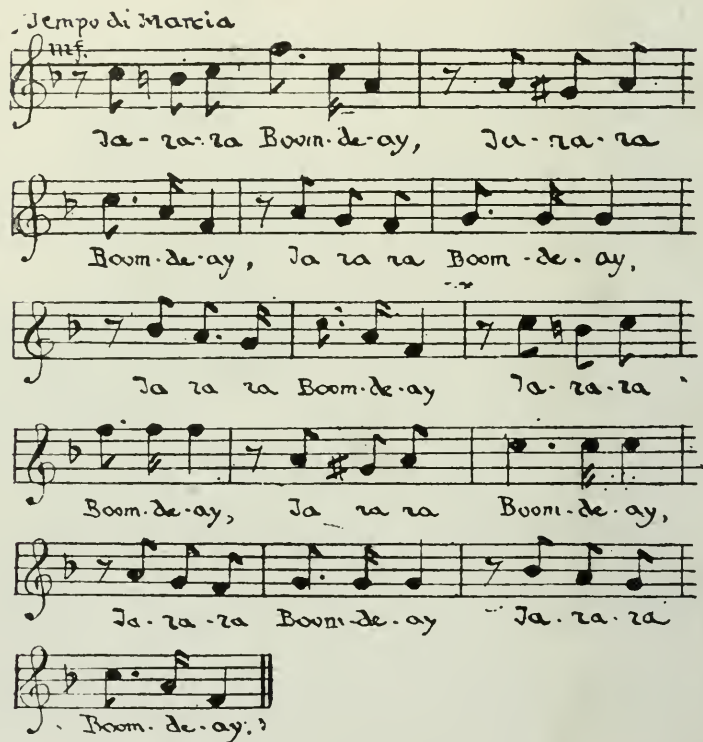 Tempo di Marcia
mf.
Ta-ra-ra Boom-de-ay, Ta-ra-ra
Boom-de-ay, Ta ra ra Boom-de-ay,
Ta ra ra Boom-de-ay Ta-ra-ra
Boom-de-ay, Ta ra ra Boom-de-ay,
Ta-ra-ra Boom-de-ay Ta-ra-ra
Boom-de-ay;